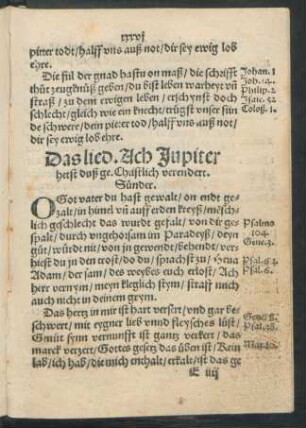 lxxvj
piter todt/halff vns auß not/dir sey ewig lob
ehre.
Die fül der gnad hastu on maß/die schrifft Johan. 1
thůt zeugknüß geben/du bist leben warheyt vñ Joh. 14.
straß/zu dem ewigen leben/erschynst doch Philip. 2
schlecht/gleich wie ein knecht/trůgst vnser sün Isaie. 52
de schwere/dein piter tod/halff vns auß not/ Coloß. 1.
dir sey ewig lob ehre.
Das lied. Ach Jupiter
hetst duß ge. Christlich verendert.
Sünder.
O Got vater du hast gewalt/on endt ge
zalt/in himel vñ auff erden kreyß/mẽsch
lich geschlecht das wurdt gefalt/von dir ge Psalmo
spalt/durch vngehorsam im Paradeyß/deyn 104.
güt/würdt nit/von jn gewendt/behendt/ver Gene. 3.
hiest du zu den trost/do du/sprachst zu/Heua Psal. 6.
Adam/der sam/des weybes euch erlost/Ach Psal. 6.
herr vernym/meyn kleglich stym/straff mich
auch nicht in deinem grym.
Das hertz in mir ist hart versert/vnd gar be
schwert/mit eygner lieb vnnd fleysches lüst/ Gene. 8.
Gmüt synn vernunfft ist gantz verkert/das Psal. 38.
marck verzert/Gottes gesetz das üben ist/Rein Mat. 20.
lab/ich hab/die mich enthalt/erkalt/ist das ge
E iiij